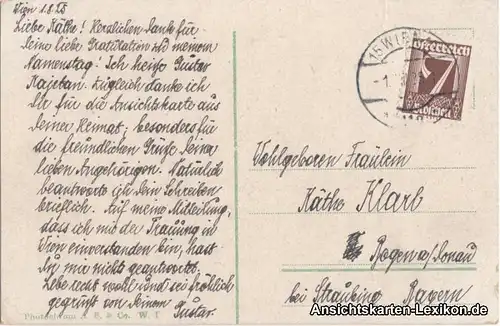 Wien 1.8.25
Liebe Käthe! Herzlichen Dank für
Deine liebe Gratulation zu meinem
Namenstag. Ich heiße Gustav
Kajetan. Zugleich danke ich
Dir für die Ansichtskarte aus
Deiner Heimat, besonders für
die freundlichen Grüße Deiner
lieben Angehörigen. Natürlich
beantworte ich Dein Schreiben
brieflich. Auf meine Mitteilung,
dass ich mit der Trauung in
Wien einverstanden bin, hast
Du mir nicht geantwortet.
Lebe recht wohl und sei herzlich
gegrüßt von Deinem
Gustav.
15 WIEN
Österreich
7
Groschen
Wohlgeboren Fräulein
Käthe Klarl
Bogen a/Donau
bei Straubing Bayern
& Co. W. I
Ansichtskarten-Lexikon.de